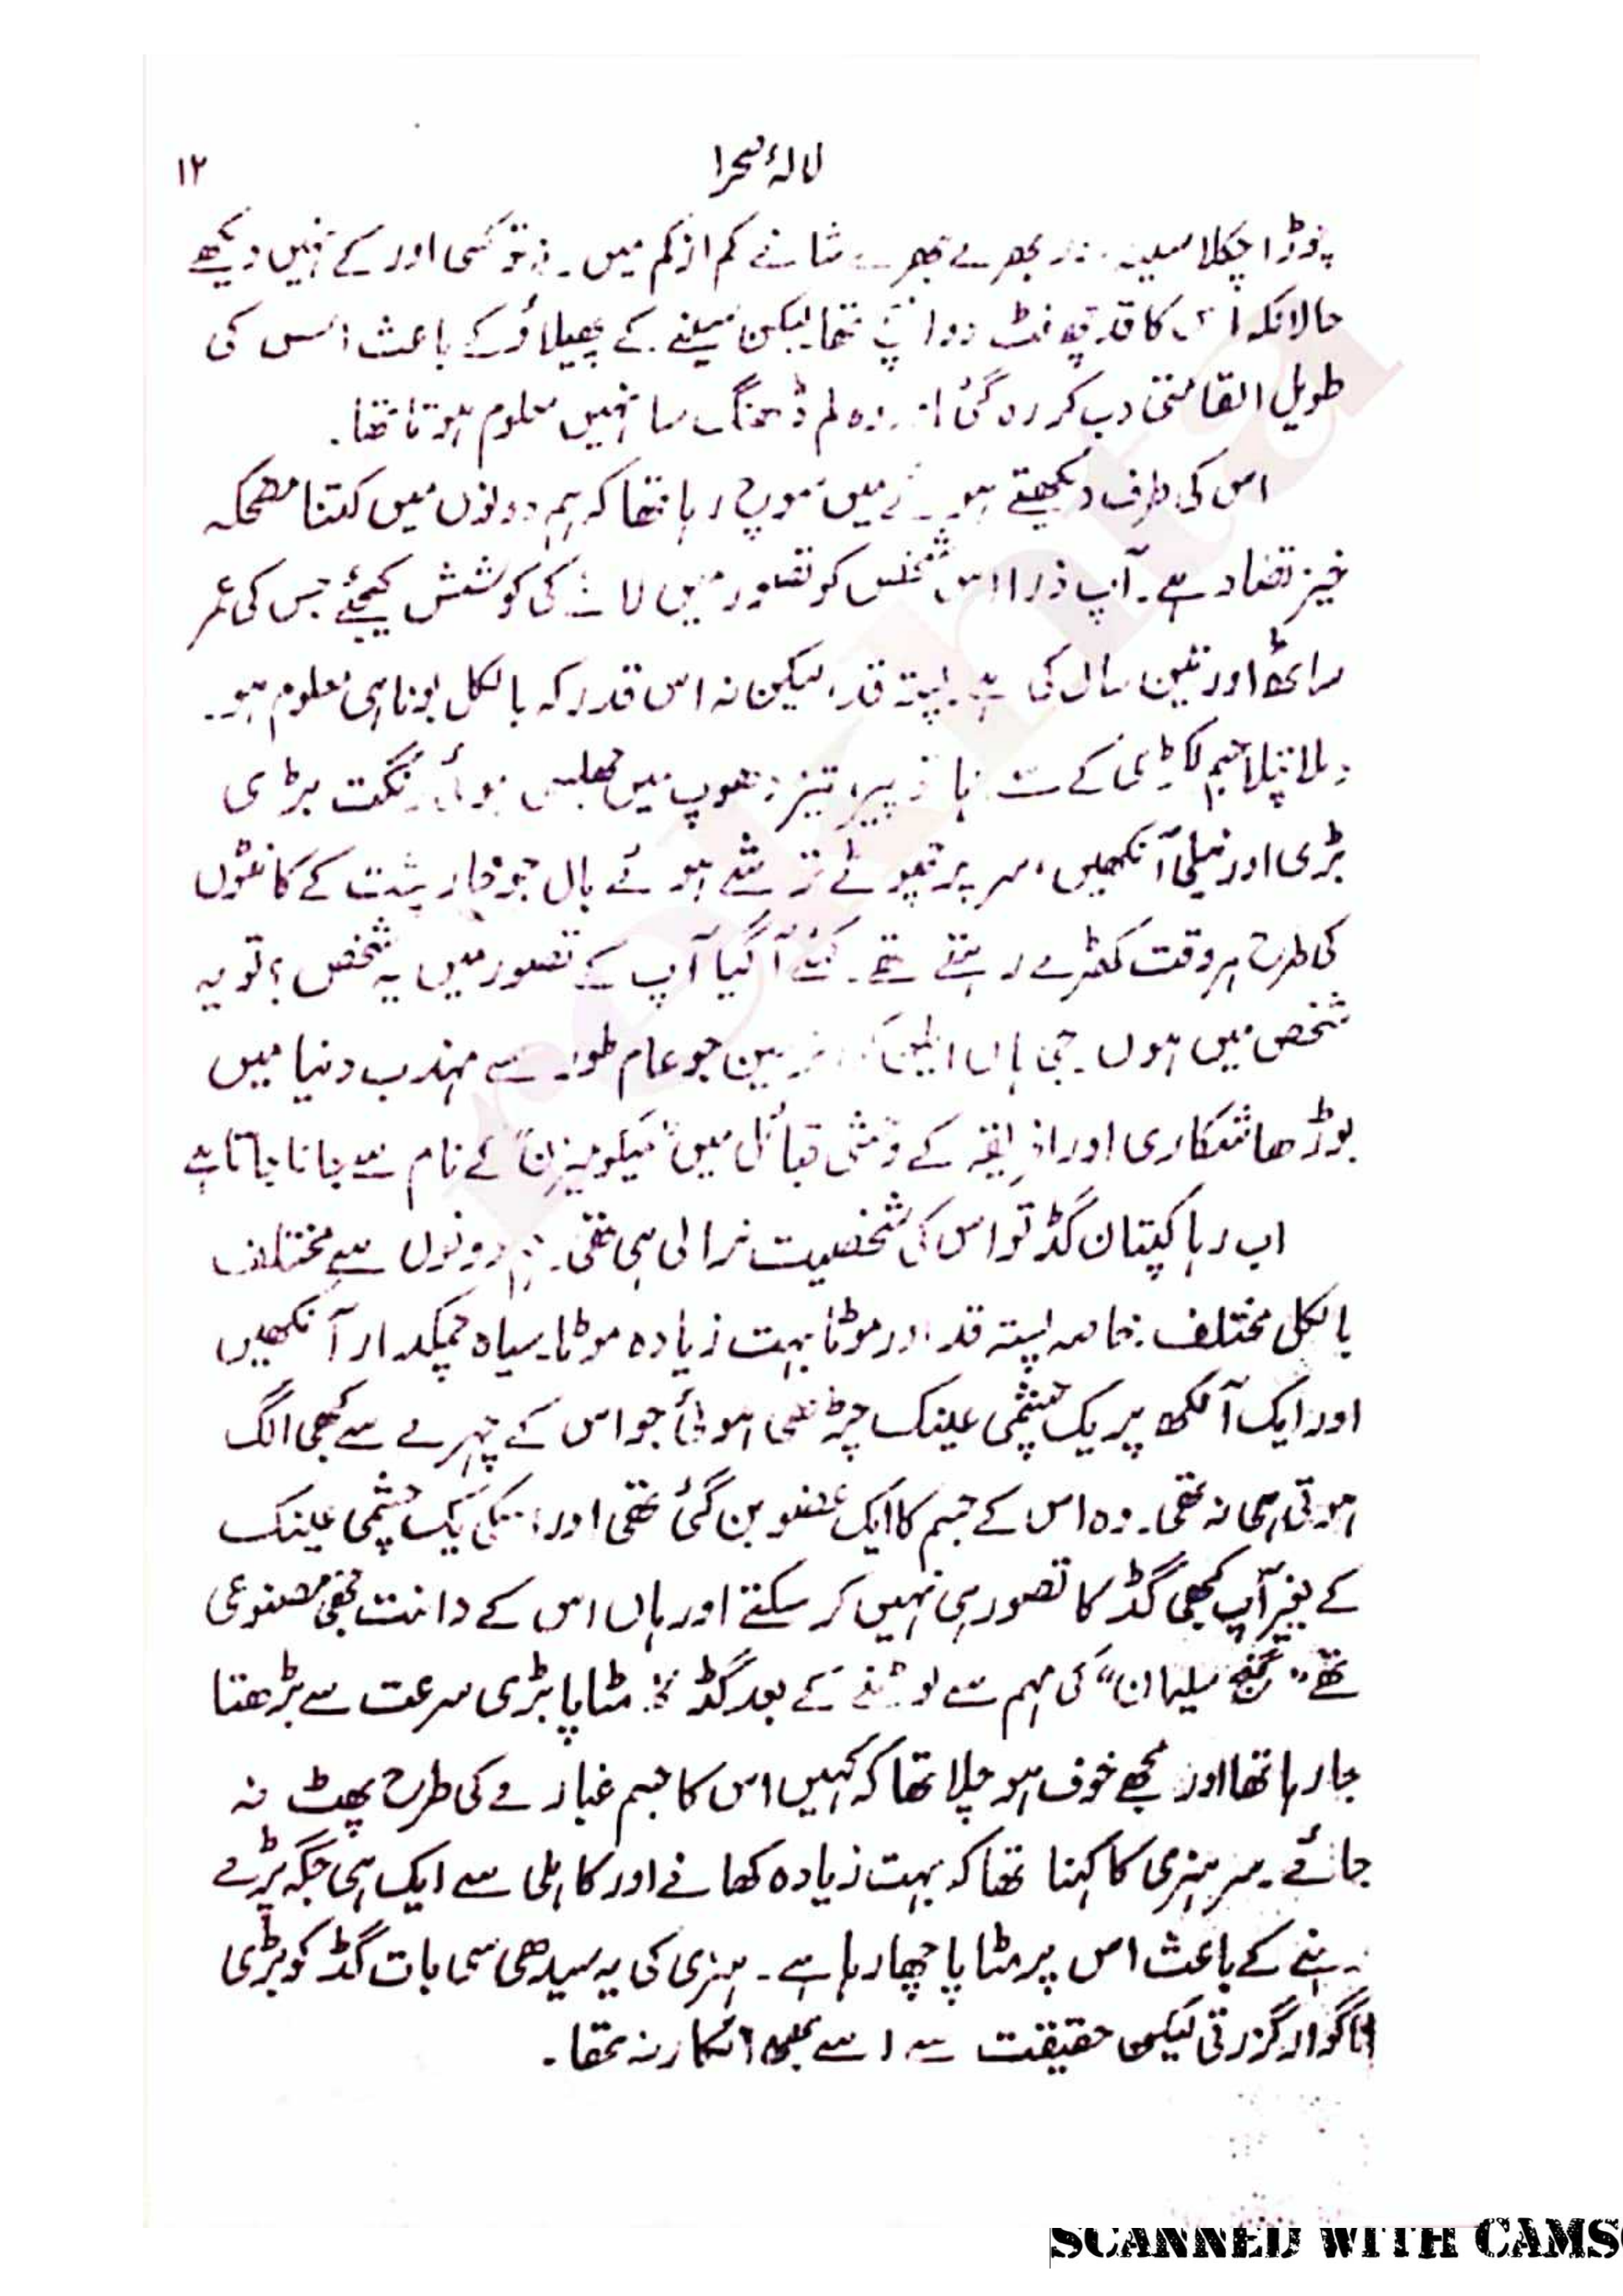 لالۂ صحرا
۱۲
چوڑا چکلا سینہ اور بھرے بھرے شانے کم از کم میں نے تو کسی اور کے نہیں دیکھے
حالانکہ اس کا قد چھ فٹ دو انچ تھا لیکن سینے کے پھیلاؤ کے باعث اس کی
طویل القامتی دب کر رہ گئی اور وہ لم ڈھنگ سا نہیں معلوم ہوتا تھا۔
اس کی طرف دیکھتے ہوئے میں سوچ رہا تھا کہ ہم دونوں میں کتنا مضحکہ
خیز تضاد ہے۔ آپ ذرا اس شخص کو تصور میں لانے کی کوشش کیجئے جس کی عمر
ساٹھ اور تین سال کی ہے پستہ قد، لیکن نہ اس قدر کہ بالکل بونا ہی معلوم ہو۔
دبلا پتلا جسم لکڑی کے سے ہاتھ پیر، تیز دھوپ میں جھلسی ہوئی رنگت بڑی
بڑی اور نیلی آنکھیں، سر پر چھوٹے ترشے ہوئے بال جو خار پشت کے کانٹوں
کی طرح ہر وقت کھڑے رہتے تھے۔ کہئے آ گیا آپ کے تصور میں یہ شخص؟ تو یہ
شخص میں ہوں۔ جی ہاں ایلین کواٹرمین جو عام طور سے مہذب دنیا میں
بوڑھا شکاری اور افریقہ کے وحشی قبائل میں "میکومیزن" کے نام سے جانا جاتا ہے
اب رہا کپتان گڈ تو اس کی شخصیت نرالی ہی تھی۔ ہم دونوں سے مختلف
بالکل مختلف۔ خاصہ پستہ قد اور موٹا بہت زیادہ موٹا۔ سیاہ چمکدار آنکھیں
اور ایک آنکھ پر یک چشمی عینک چڑھی ہوئی جو اس کے چہرے سے کبھی الگ
ہوتی ہی نہ تھی۔ وہ اس کے جسم کا ایک عضو بن گئی تھی اور اسکی یک چشمی عینک
کے بغیر آپ کبھی گڈ کا تصور ہی نہیں کر سکتے اور ہاں اس کے دانت بھی مصنوعی
تھے "گنج سلیمان" کی مہم سے لوٹنے کے بعد گڈ کا مٹاپا بڑی سرعت سے بڑھتا
جا رہا تھا اور مجھے خوف ہو چلا تھا کہ کہیں اس کا جسم غبارے کی طرح پھٹ نہ
جائے۔ سر ہنری کا کہنا تھا کہ بہت زیادہ کھانے اور کاہلی سے ایک ہی جگہ پڑے
رہنے کے باعث اس پر مٹاپا چھا رہا ہے۔ ہنری کی یہ سیدھی سی بات گڈ کو بڑی
ناگوار گزرتی لیکن حقیقت سے اسے بھی انکار نہ تھا۔
rekhta
SCANNED WITH CAMS